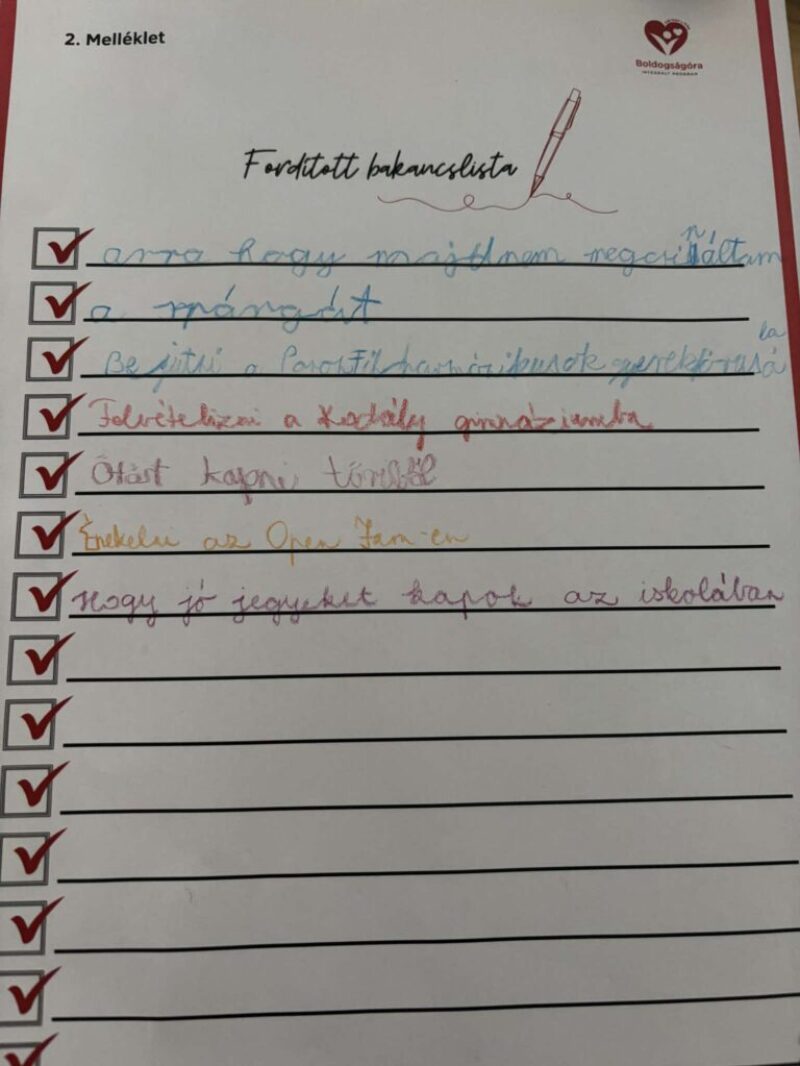 2. Melléklet
Boldogságóra
INTEGRÁLT PROGRAM
Fordított bakancslista
arra hogy majdnem megcsináltam
a spárgát
Be jutni a Filharmónikusok zenekarába
Felvételizni a Kodály gimnáziumba
Ötöst kapni töriből
Énekelni az Open Jam-en
Hogy jó jegyeket kapok az iskolában